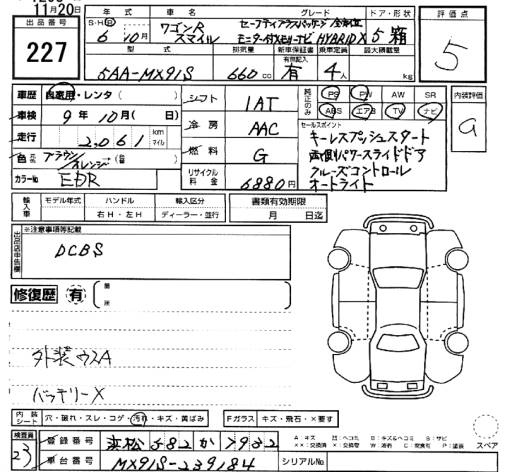 11月20日
出品番号
227
年 式
S・H・R
6年10月
車 名
ワゴンR
スマイル
グレード
セーフティプラスパッケージ 全方位
モニター付メモリーナビ HYBRID X
ドア・形状
5 箱
評価点
5
型 式
5AA-MX91S
排気量
660cc
新車保証書
有
乗車定員
4人
最大積載量
kg
車歴
自家用・レンタ( )
車検
9年10月( 日)
走行
2,061
km
マイル
色
ブラウン/オレンジ
( 色)
カラーNo
EDR
シフト
1AT
冷 房
AAC
燃 料
G
リサイクル料 金
6880円
純正のみ
PS PW AW SR
ABS エアB TV ナビ
セールスポイント
キーレスプッシュスタート
両側パワースライドドア
クルーズコントロール
オートライト
内装評価
a
輸入車
モデル年式
ハンドル
右H・左H
輸入区分
ディーラー・並行
書類有効期限
月 日迄
出品店申告欄
※注意事項等記載
DCBS
修復歴
有
箇所
外装ウスA
バッテリーX
内装シート
穴・破れ・スレ・コゲ・汚れ・キズ・黄ばみ
Fガラス
キズ・飛石・×要す
スペア
検査員
23
登録番号
浜松 582 か 7932
車台番号
MX91S-239184
シリアルNo